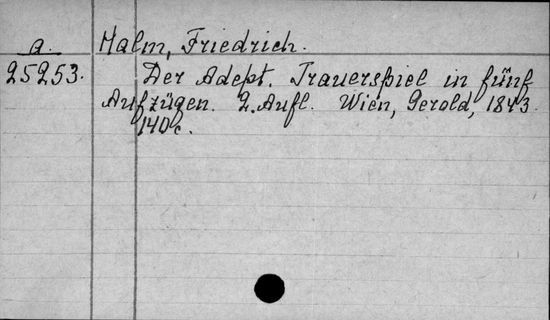 a. Halm, Friedrich.
25253. Der Adept. Trauerspiel in fünf
Aufzügen. 2. Aufl. Wien, Gerold, 1843.
140 c.